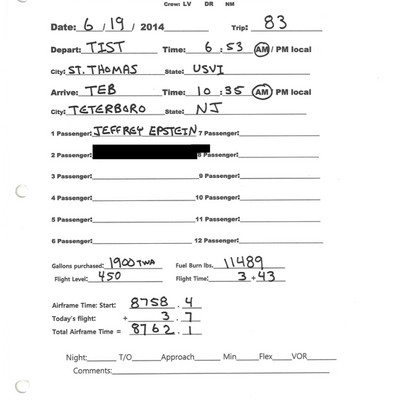 Crew: LV DR NM
Date: 6 / 19 / 2014 Trip: 83
Depart: TIST Time: 6 : 53 AM / PM local
City: ST. THOMAS State: USVI
Arrive: TEB Time: 10 : 35 AM / PM local
City: TETERBORO State: NJ
1 Passenger: JEFFREY EPSTEIN 7 Passenger:
2 Passenger: 8 Passenger:
3 Passenger: 9 Passenger:
4 Passenger: 10 Passenger:
5 Passenger: 11 Passenger:
6 Passenger: 12 Passenger:
Gallons purchased: 1900 TWA Fuel Burn lbs. 11489
Flight Level: 450 Flight Time: 3 + 43
Airframe Time: Start: 8758 . 4
Today's flight: + 3 . 7
Total Airframe Time = 8762 . 1
Night: T/O Approach Min Flex VOR
Comments: